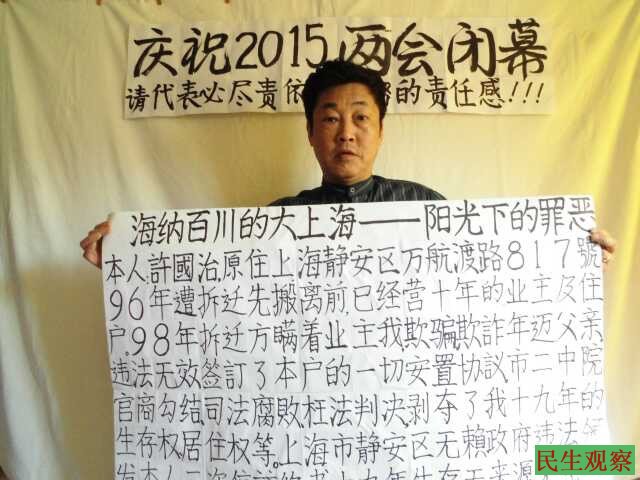 庆祝2015两会闭幕
请代表必尽责依 的责任感!!!
海纳百川的大上海——阳光下的罪恶
本人,許國治,原住上海静安区万航渡路817號
96年遭拆迁先搬离前,已经营十年的业主及住
户,98年拆迁方瞒着业主我,欺骗欺詐年迈父亲
违法无效签訂了本户的一切安置协議,市二中院
官商勾结,司法腐敗,枉法判决,剥夺了我十九年的
生存权,居住权等,上海市静安区无賴政府违法
民生观察